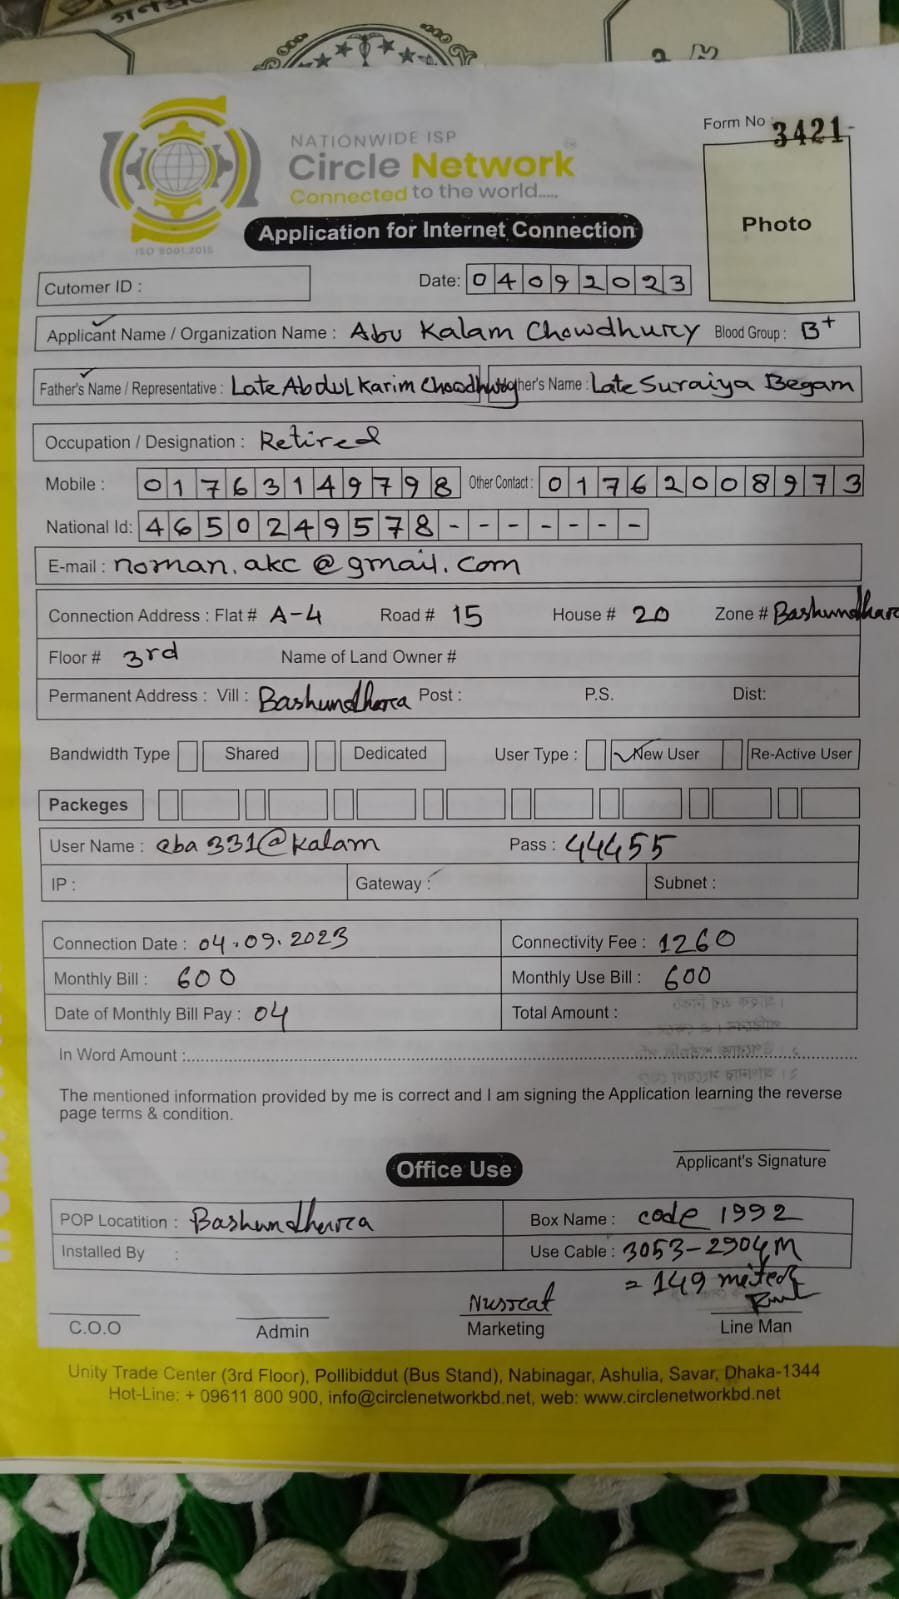 Form No 3421
NATIONWIDE ISP
Circle Network
Connected to the world.....
ISO 9001:2015
Application for Internet Connection
Photo
Cutomer ID :
Date: 04092023
Applicant Name / Organization Name : Abu Kalam Chowdhury Blood Group : B+
Father's Name / Representative : Late Abdul Karim Chowdhury Mother's Name : Late Suraiya Begam
Occupation / Designation : Retired
Mobile : 01763149798 Other Contact : 01762008973
National Id: 4650249578-------
E-mail : noman.akc@gmail.com
Connection Address : Flat # A-4 Road # 15 House # 20 Zone #
Floor # 3rd Name of Land Owner #
Permanent Address : Vill : Bashundhara Post : P.S. Dist:
Bandwidth Type Shared Dedicated User Type : New User Re-Active User
Packeges
User Name : @kalam Pass : 44455
IP : Gateway : Subnet :
Connection Date : 04.09.2023 Connectivity Fee : 1260
Monthly Bill : 600 Monthly Use Bill : 600
Date of Monthly Bill Pay : 04 Total Amount :
In Word Amount :
The mentioned information provided by me is correct and I am signing the Application learning the reverse
page terms & condition.
Applicant's Signature
Office Use
POP Locatition : Bashundhara Box Name : code 1992
Installed By : Use Cable : 3053-2904M
= 149 meter
Nusrat
C.O.O Admin Marketing Line Man
Unity Trade Center (3rd Floor), Pollibiddut (Bus Stand), Nabinagar, Ashulia, Savar, Dhaka-1344
Hot-Line: + 09611 800 900, info@circlenetworkbd.net, web: www.circlenetworkbd.net